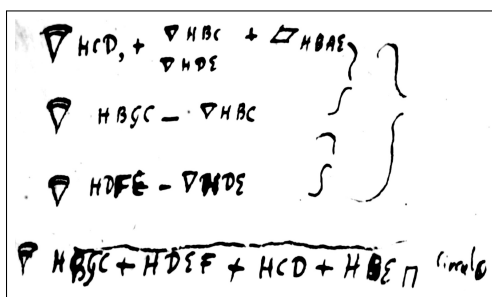 HCD, + ▽HBC + ▱HBAE
▽HDE
HBGC − ▽HBC
HDFE − ▽HDE
HBGC + HDEF + HCD + HBE ⊓ Circulo